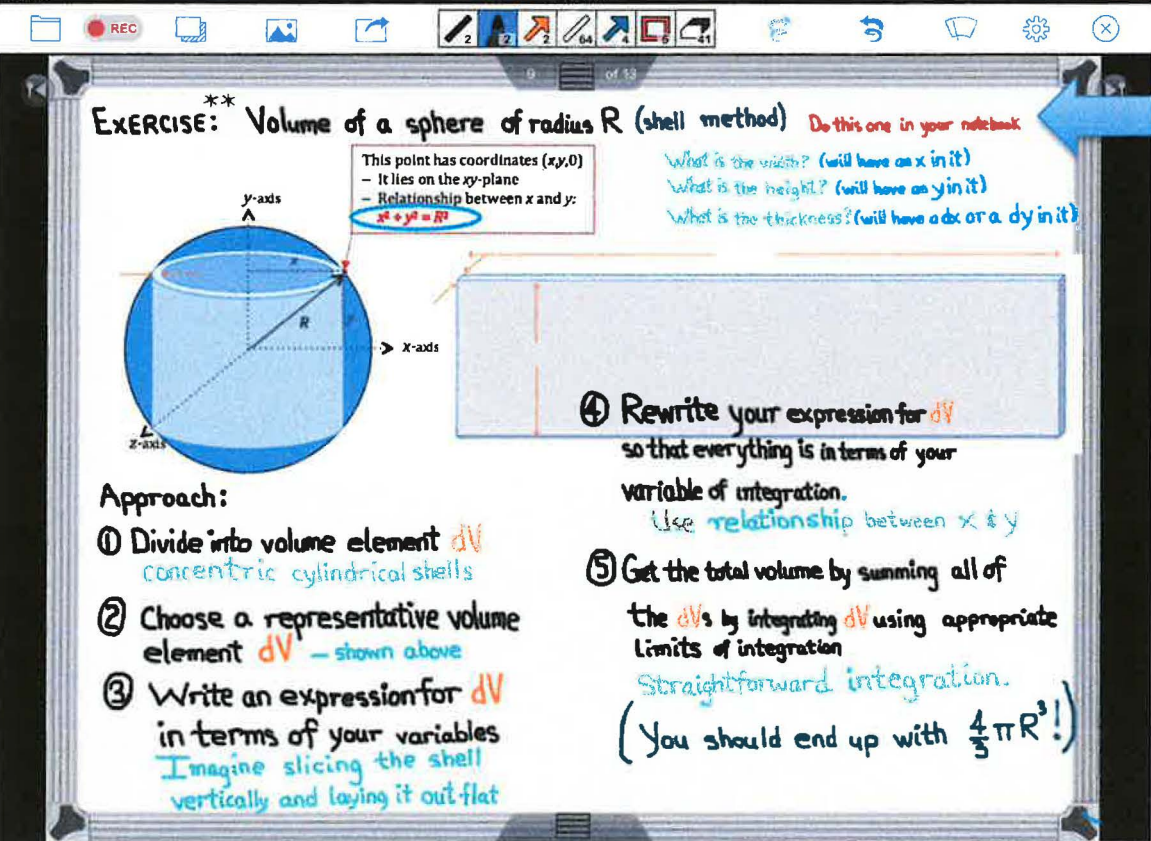 REC
2
2
2
64
4
5
41
9 of 13
EXERCISE:** Volume of a sphere of radius R (shell method) Do this one in your notebook
This point has coordinates (x,y,0)
– It lies on the xy-plane
– Relationship between x and y:
x² + y² = R²
What is the width? (will have an x in it)
What is the height? (will have an y in it)
What is the thickness? (will have a dx or a dy in it)
y-axis
x
R
y
x-axis
z-axis
Approach:
① Divide into volume element dV
concentric cylindrical shells
② Choose a representative volume
element dV – shown above
③ Write an expression for dV
in terms of your variables
Imagine slicing the shell
vertically and laying it out flat
④ Rewrite your expression for dV
so that everything is in terms of your
variable of integration.
Use relationship between x & y
⑤ Get the total volume by summing all of
the dVs by integrating dV using appropriate
limits of integration
Straightforward integration.
(You should end up with 4/3 πR³!)